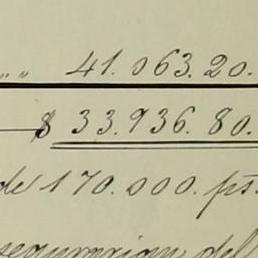 „ „ 41.063.20.
$ 33.936.80.
de 170.000. pts.